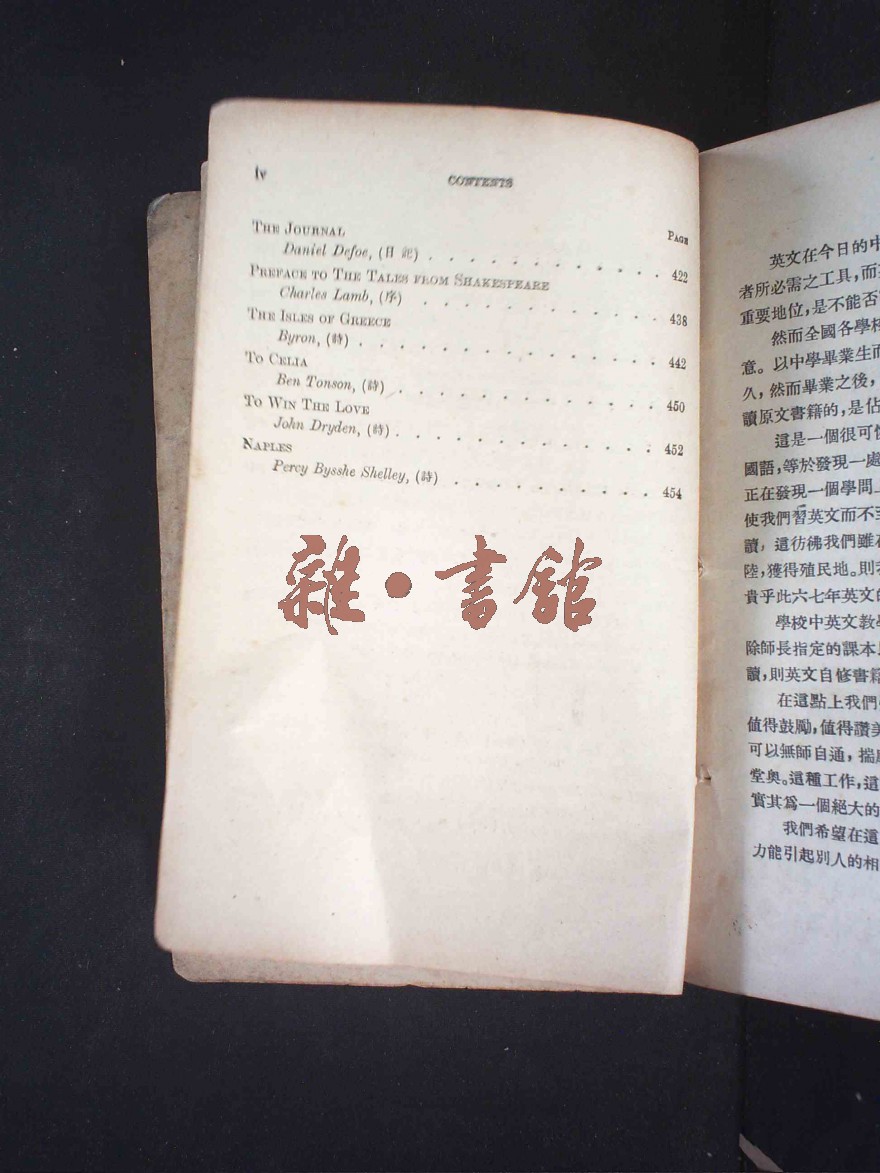 iv CONTENTS
PAGE
THE JOURNAL
Daniel Defoe, (日記) . . . . . . . . . . . . 422
PREFACE TO THE TALES FROM SHAKESPEARE
Charles Lamb, (序) . . . . . . . . . . . . 438
THE ISLES OF GREECE
Byron, (詩) . . . . . . . . . . . . . . . 442
TO CELIA
Ben Tonson, (詩) . . . . . . . . . . . . . 450
TO WIN THE LOVE
John Dryden, (詩) . . . . . . . . . . . . . 452
NAPLES
Percy Bysshe Shelley, (詩) . . . . . . . . . . . 454
雜·書館
英文在今日的中
者所必需之工具,而
重要地位,是不能否
然而全國各學校
意。以中學畢業生而
久,然而畢業之後,
讀原文書籍的,是佔
這是一個很可惜
國語,等於發現一處
正在發現一個學問上
使我們習英文而不至
讀,這彷彿我們雖在
陸,獲得殖民地。則
貴乎此六七年英文的
學校中英文教學
除師長指定的課本
讀,則英文自修書籍
在這點上我們
值得鼓勵,值得讚美
可以無師自通,揣
堂奥。這種工作,這
實其爲一個絕大的
我們希望在這
力能引起別人的相